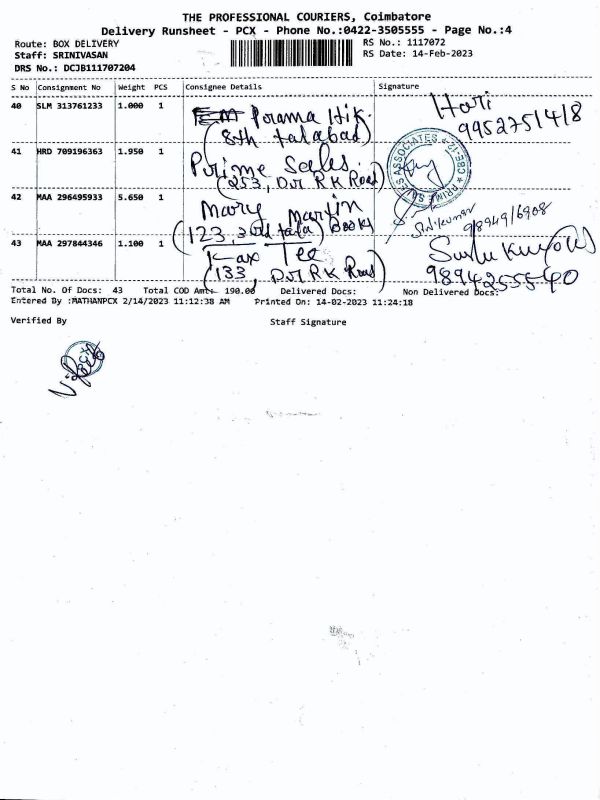 THE PROFESSIONAL COURIERS, Coimbatore
Delivery Runsheet - PCX - Phone No.:0422-3505555 - Page No.:4
Route: BOX DELIVERY RS No.: 1117072
Staff: SRINIVASAN RS Date: 14-Feb-2023
DRS No.: DCJB111707204
S No Consignment No Weight PCS Consignee Details Signature
40 SLM 313761233 1.000 1 Hari
(8th talabad) 9952751418
41 HRD 709196363 1.950 1 Prime Sales. PRIME SALES ASSOCIATES ★ CBE-12 ★
(253, Dr RK Road)
42 MAA 296495933 5.650 1 Mary Martin
(123, 3rd tata) Books
43 MAA 297844346 1.100 1 Tee
(133, Dr RK Road) 9894255540
Total No. Of Docs: 43 Total COD Amt: 190.00 Delivered Docs: Non Delivered Docs:
Entered By :MATHANPCX 2/14/2023 11:12:38 AM Printed On: 14-02-2023 11:24:18
Verified By Staff Signature